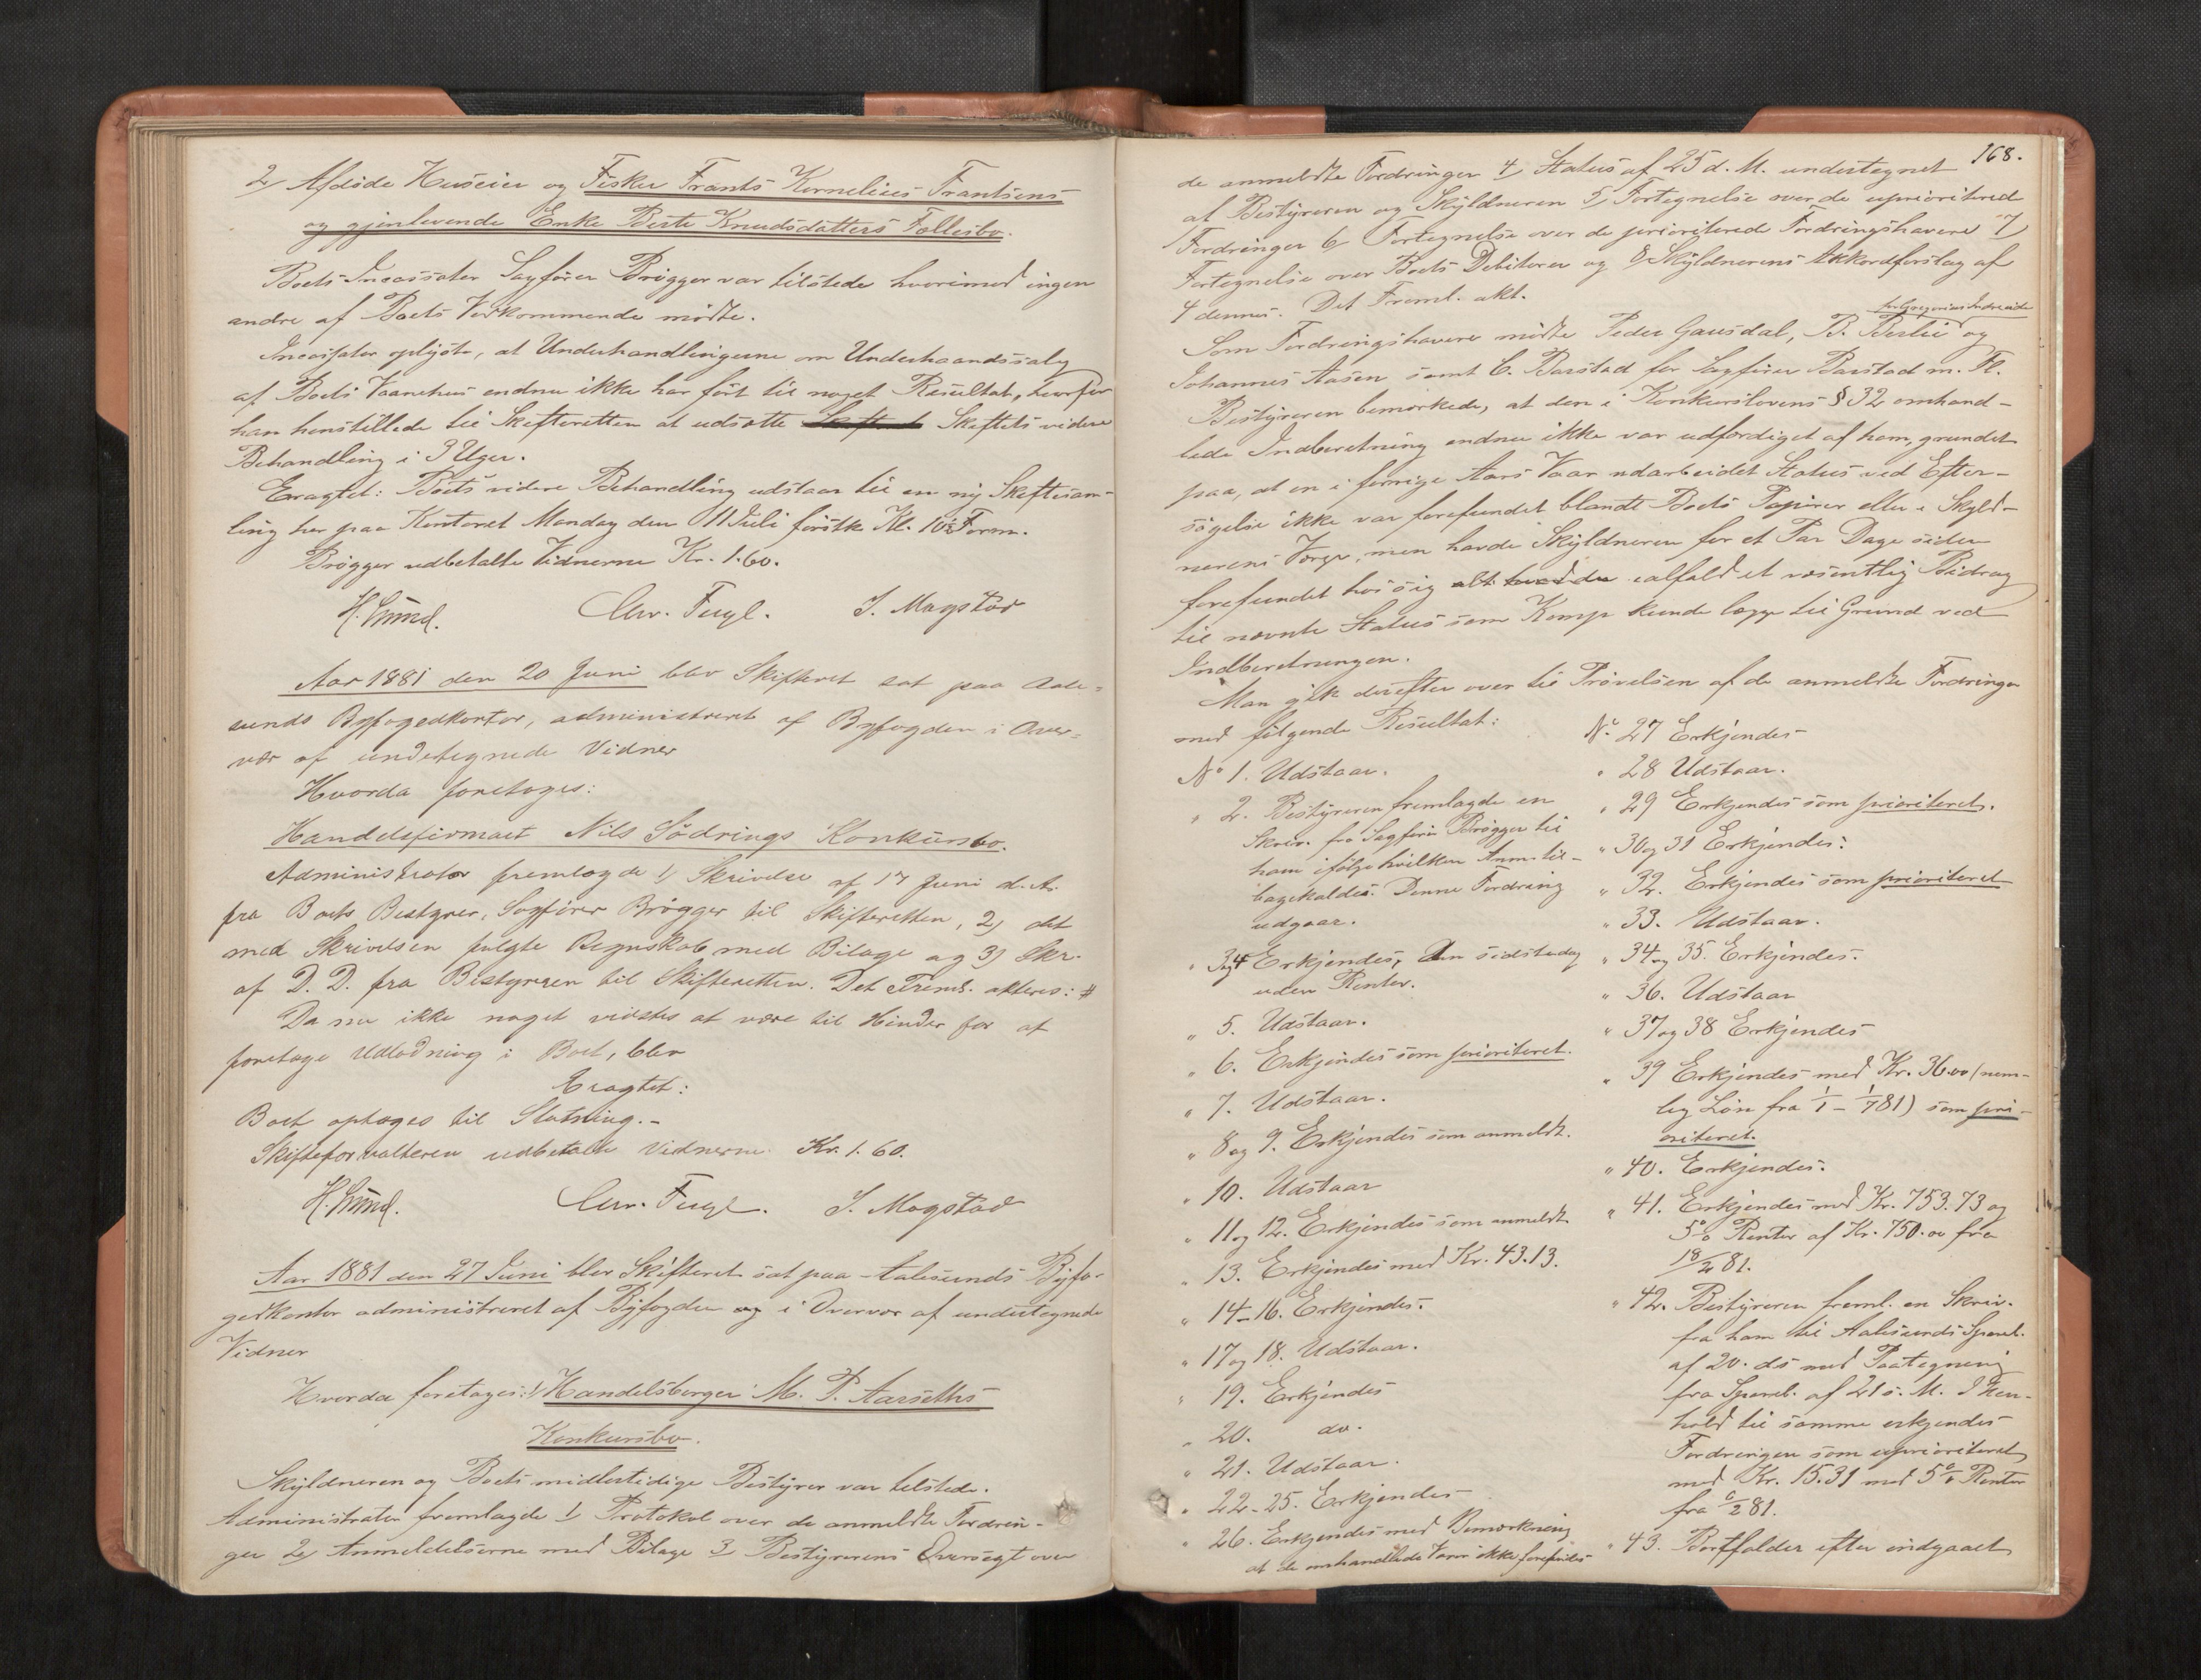 2/ Afdøde Huseier og Fisker Frants Kornelius Frantsens
og gjenlevende Enke Berte Knudsdatters Fællesbo.
Boets Incassator Sagfører Brøgger var tilstede hvorimod ingen
andre af Boets Vedkommende mødte.
Incassator oplyste, at Underhandlingerne om Underhaandssalg
af Boets Vaanehus endnu ikke har ført til noget Resultat, hvorfor
han henstillede til Skifteretten at udsætte Skiftets videre
Behandling i 3 Uger.
Eragtet: Boets videre Behandling udstaar til en ny Skiftesam-
ling her paa Kontoret Mandag den 11 Juli førstk. Kl. 10 Form.
Brøgger udbetalte Vidnerne Kr. 1.60.
Chr. Fugl. S. Magstad
Aar 1881 den 20 Juni blev Skifteret sat paa Aale-
sunds Byfogedkontor, administreret af Byfogden i Over-
vær af undertegnede Vidner
Hvorda foretoges:
Handelsfirmaet Nils Södrings Konkursbo.
Administrator fremlagde 1/ Skrivelse af 17 Juni d. A.
fra Boets Bestyrer, Sagfører Brøgger til Skifteretten, 2) det
med Skrivelsen fulgte Regnskab med Bilage og 3) Skr.
af D. D. fra Bestyreren til Skifteretten. Det Freml. akteres: #
Da nu ikke noget vidstes at være til Hinder for at
foretage Udlodning i Boet, blev
Eragtet:
Boet optages til Slutning.-
Skifteforvalteren udbetalte Vidnerne Kr. 1.60.
Chr. Fugl. S. Magstad
Aar 1881 den 27 Juni blev Skifteret sat paa Aalesunds Byfo-
gedkontor administreret af Byfogden og i Overvær af undertegnede
Vidner
Hvorda foretoges: 1/ Handelsborger M. P. Aarseths
Konkursbo.
Skyldneren og Boets midlertidige Bestyrer var tilstede.
Administrator fremlagde 1/ Protokol over de anmeldte Fordrin-
ger 2/ Anmeldelserne med Bilage 3/ Bestyrerens Oversigt over
168.
de anmeldte Fordringer 4/ Status af 25 d. M. undertegnet
af Bestyreren og Skyldneren 5/ Fortegnelse over de uprioriterede
Fordringer 6/ Fortegnelse over de prioriterede Fordringshavere 7/
Fortegnelse over Boets Debitorer og 8/ Skyldnerens Akkordforslag af
4 dennes. Det Freml. akt.
Som Fordringshavere mødte Peder Gausdal, B. Berlie og
Johannes Aasen samt C. Barstad for Sagfører Barstad m. Fl.
Bestyreren bemærkede, at den i Konkurslovens § 32 omhand-
lede Indberetning endnu ikke var udfærdiget af ham, grundet
paa, at en i forrige Aars Vaar udarbeidet Status ved Efter-
søgelse ikke var forefundet blandt Boets Papirer eller i Skyld-
nerens Værge, men havde Skyldneren for et Par Dage siden
forefundet hos sig alt hvad der ialfald et væsentlig Bidrag
til nævnte Status som Komp. kunde lægge til Grund ved
Indberetningen.
Man gik derefter over til Prøvelsen af de anmeldte Fordringer
med følgende Resultat:
No 1. Udstaar.
" 2. Bestyreren fremlagde en
Skriv. fra Sagfører Brøgger til
ham ifølge hvilken Anm. til-
bagekaldes. Denne Fordring
udgaar.
" 3 og 4 Erkjendes, den sidste dog
uden Renter.
" 5. Udstaar.
" 6. Erkjendes som prioriteret.
" 7. Udstaar.
" 8 og 9. Erkjendes som anmeldt.
" 10. Udstaar
" 11 og 12. Erkjendes som anmeldt
" 13. Erkjendes med Kr. 43.13.
" 14-16. Erkjendes.
" 17 og 18. Udstaar.
" 19. Erkjendes
" 20. do.
" 21. Udstaar.
" 22-25. Erkjendes
" 26. Erkjendes med Bemærkning
at de omhandlede Varer ikke forefindes
No 27 Erkjendes
" 28 Udstaar.
" 29 Erkjendes som prioriteret.
" 30 og 31 Erkjendes.
" 32. Erkjendes som prioriteret
" 33. Udstaar.
" 34 og 35. Erkjendes.
" 36. Udstaar
" 37 og 38 Erkjendes
" 39 Erkjendes med Kr. 36.00 (nem-
lig Løn fra 1/1 - 1/7 81) som pri-
oriteret.
" 40. Erkjendes.
" 41. Erkjendes med Kr. 753.73 og
5% Renter af Kr. 750.00 fra
18/2 81.
" 42. Bestyreren freml. en Skriv.
fra ham til Aalesunds Spareb.
af 20. ds med Paategning
fra Spareb. af 21 s. M. I Hen-
hold til samme erkjendes
Fordringen som uprioriteret
med Kr. 15.31 med 5% Renter
fra 6/2 81.
" 43. Bortfalder efter indgaaet